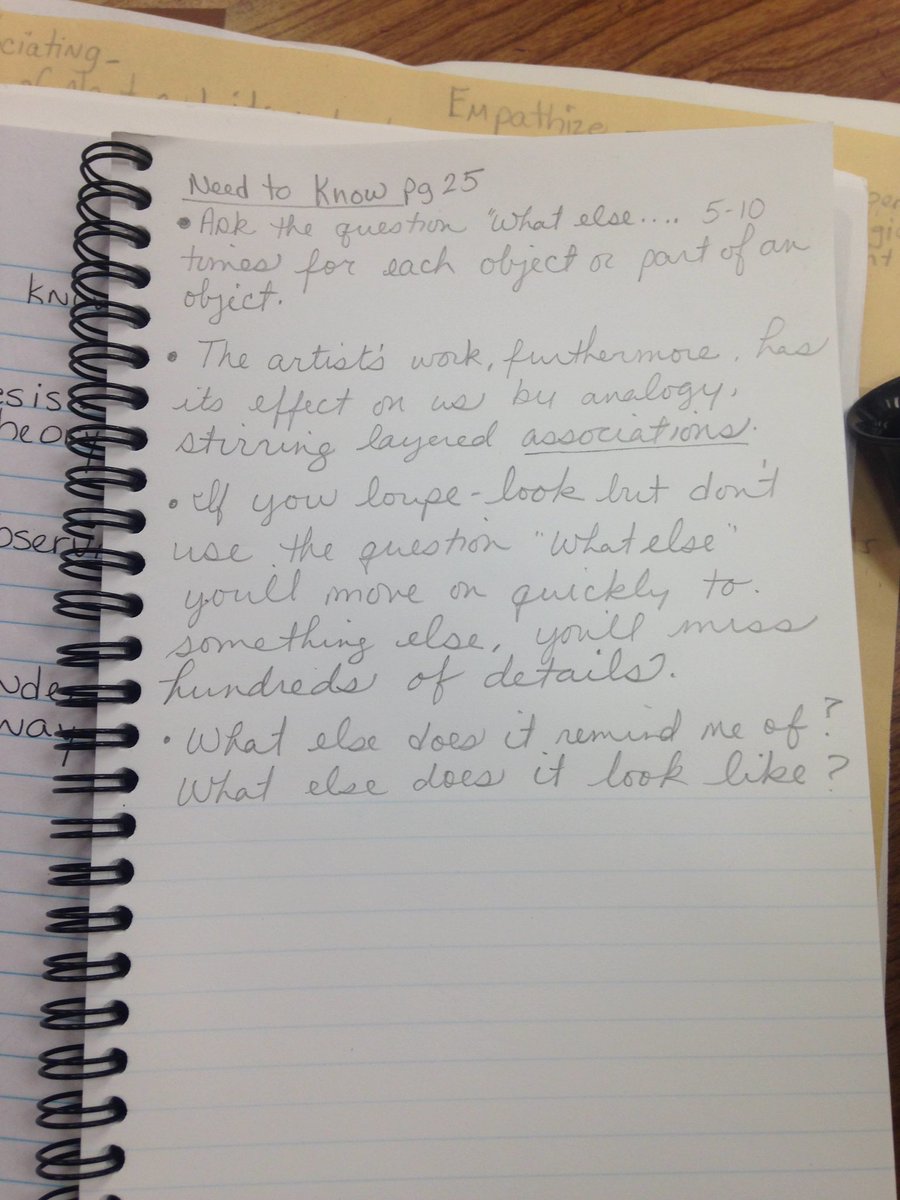 ciating-
Empathize -
Need to Know pg 25
• Ask the question "What else.... 5-10
times for each object or part of an
object.
• The artist's work, furthermore, has
its effect on us by analogy,
stirring layered associations.
• If you loupe-look but don't
use the question "What else"
you'll move on quickly to
something else, you'll miss
hundreds of details.
• What else does it remind me of?
What else does it look like?
Kn
es is
heory
bserv
nde
way